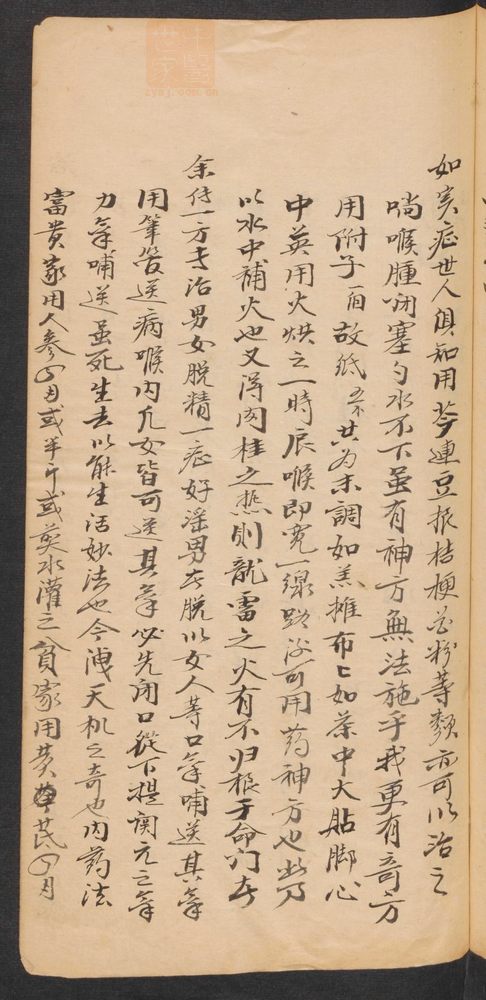 如实症世人俱知用芩連豆根桔梗花粉等類亦可以治之
喘喉腫啞塞勺水不下虽有神方無法施乎我更有奇方
用附子一ケ故紙五不共为末調如羔摊布上如茶中大贴脚心
中英用火烘之一時辰喉即宽一線路汤可用药神方也此乃
以水中補火也又得肉桂之热則龍雷之火有不归根于命门去
余传一方专治男女脱精一症好淫男女脱以女人等口氣哺送其氣
用笔管送病喉内凡女皆可送其氣必先闭口從下提関元之氣
力氣哺送虽死生去以能生活妙法也今洩天机之奇也内药法
富貴家用人参四月或半斤或煎水灌之貧家用黄芪四月
世醫
zysj.com.cn